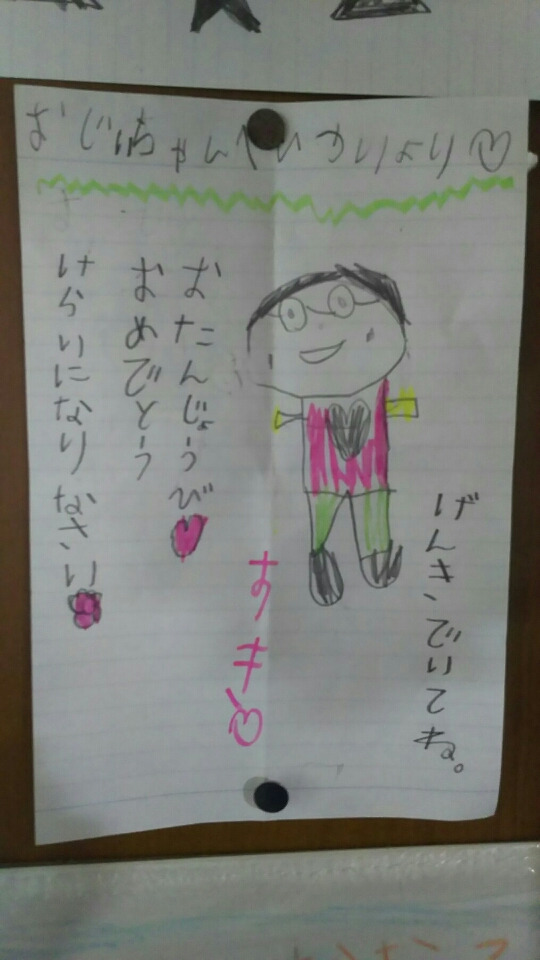 おじいちゃんへ いかりより♡
げんきでいてね。
すき♡
おたんじょうび
おめでとう
けらいになりなさい